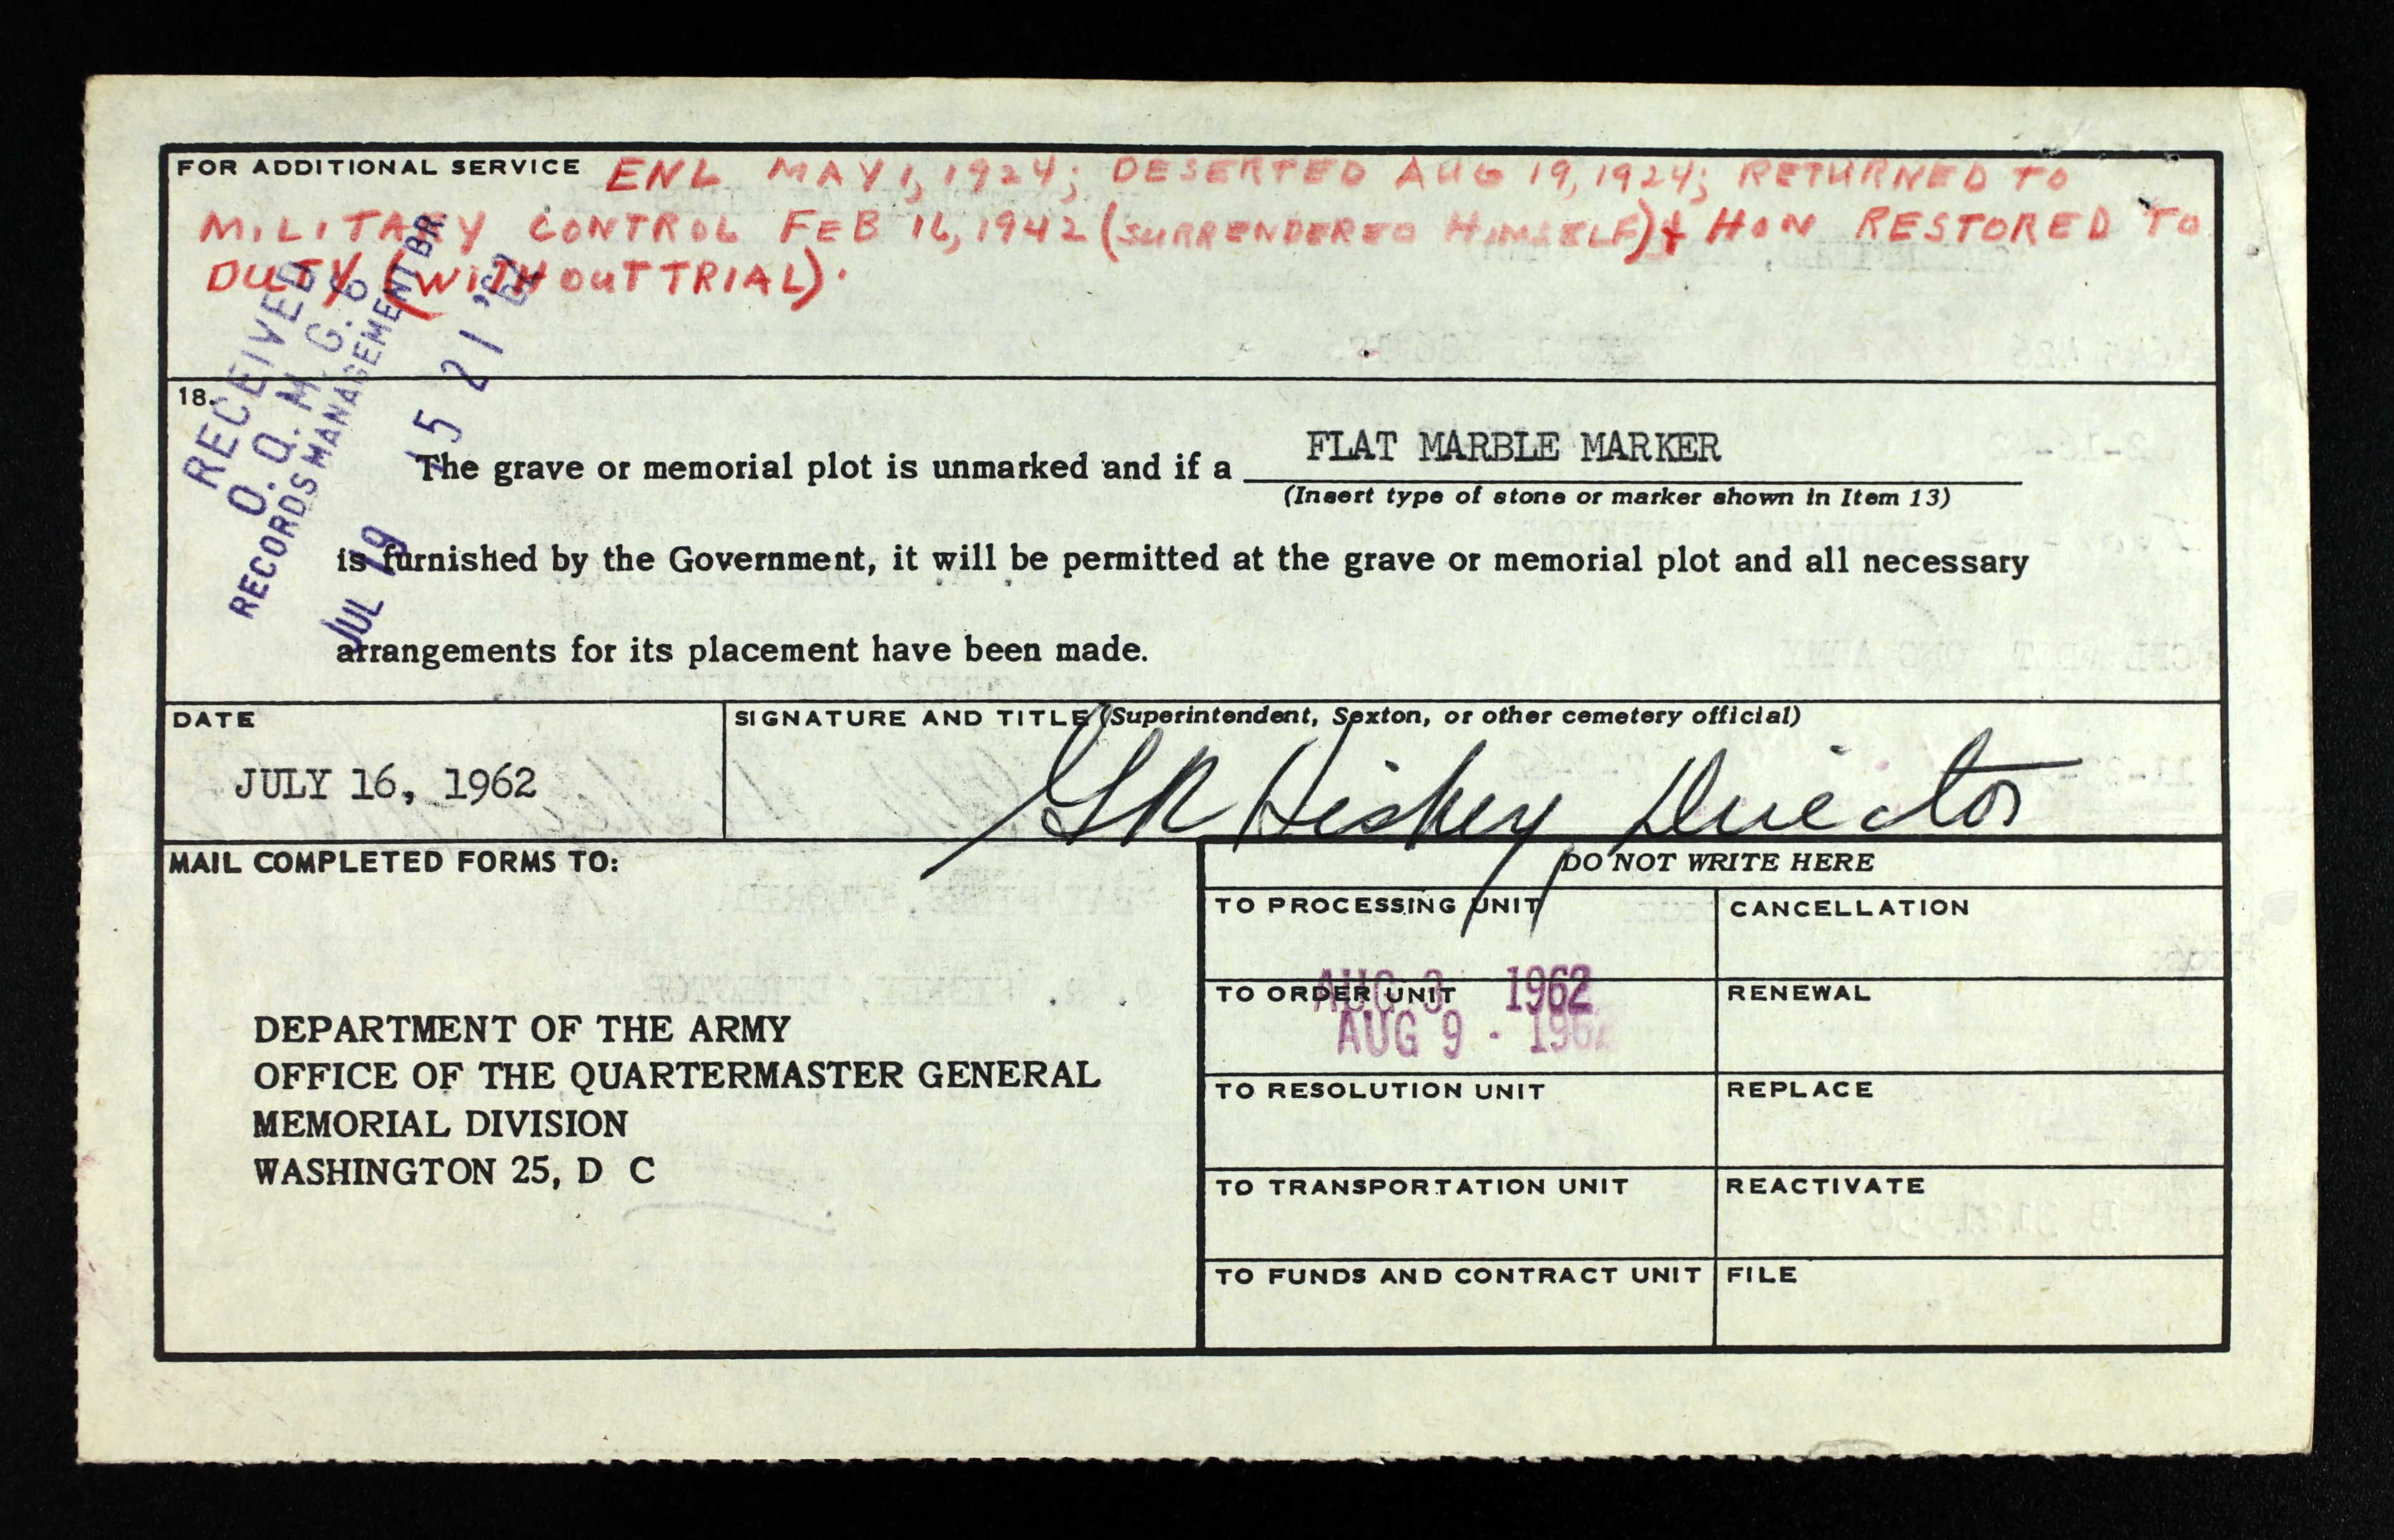 FOR ADDITIONAL SERVICE ENL MAY 1, 1924; DESERTED AUG 19, 1924; RETURNED TO
MILITARY CONTROL FEB 16, 1942 (SURRENDERED HIMSELF) & HON RESTORED TO
DUTY (WITHOUT TRIAL).
RECEIVED
O. Q. M. G.
RECORDS MANAGEMENT BR
JUL 19 15 21 '62
18.
The grave or memorial plot is unmarked and if a FLAT MARBLE MARKER
(Insert type of stone or marker shown in Item 13)
is furnished by the Government, it will be permitted at the grave or memorial plot and all necessary
arrangements for its placement have been made.
DATE
JULY 16, 1962
SIGNATURE AND TITLE (Superintendent, Sexton, or other cemetery official)
Director
MAIL COMPLETED FORMS TO:
DEPARTMENT OF THE ARMY
OFFICE OF THE QUARTERMASTER GENERAL
MEMORIAL DIVISION
WASHINGTON 25, D C
DO NOT WRITE HERE
TO PROCESSING UNIT
CANCELLATION
AUG 3 1962
TO ORDER UNIT
AUG 9 - 1962
RENEWAL
TO RESOLUTION UNIT
REPLACE
TO TRANSPORTATION UNIT
REACTIVATE
TO FUNDS AND CONTRACT UNIT
FILE